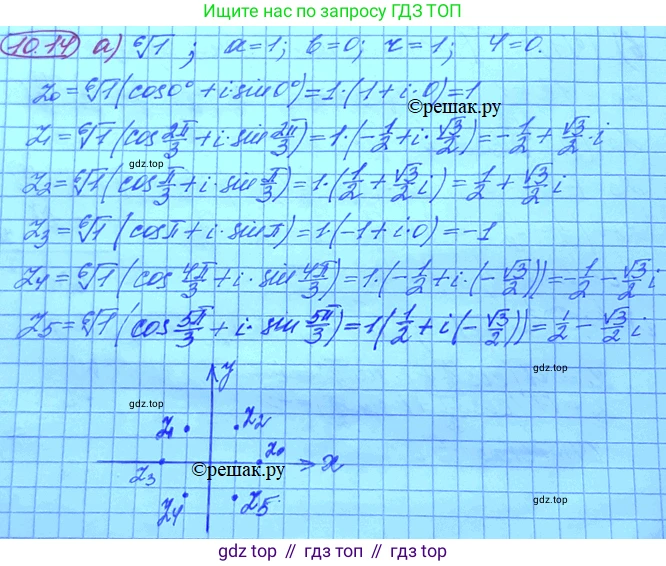 Ищите нас в поиске по запросу ГДЗ ТОП
10.14 а) ⁶√1 ; a=1; b=0; r=1; φ=0.
z₀=⁶√1(cos0°+i·sin0°)=1·(1+i·0)=1
©решак.ру
z₁=⁶√1(cos 2π/3 + i·sin 2π/3)=1·(-1/2+i·√3/2)=-1/2+√3/2·i
z₂=⁶√1(cos π/3 + i·sin π/3)=1·(1/2+√3/2 i)=1/2+√3/2 i
z₃=⁶√1(cosπ+i·sinπ)=1·(-1+i·0)=-1
z₄=⁶√1(cos 4π/3 + i·sin 4π/3)=1·(-1/2+i·(-√3/2))=-1/2-√3/2 i
z₅=⁶√1(cos 5π/3 + i·sin 5π/3)=1(1/2+i(-√3/2))=1/2-√3/2 i
y
gdz.top
gdz.top
z₁ z₂
z₀
z₃ ©решак.ру x
z₄ z₅
gdz.top
gdz.top // гдз.топ // gdz.top